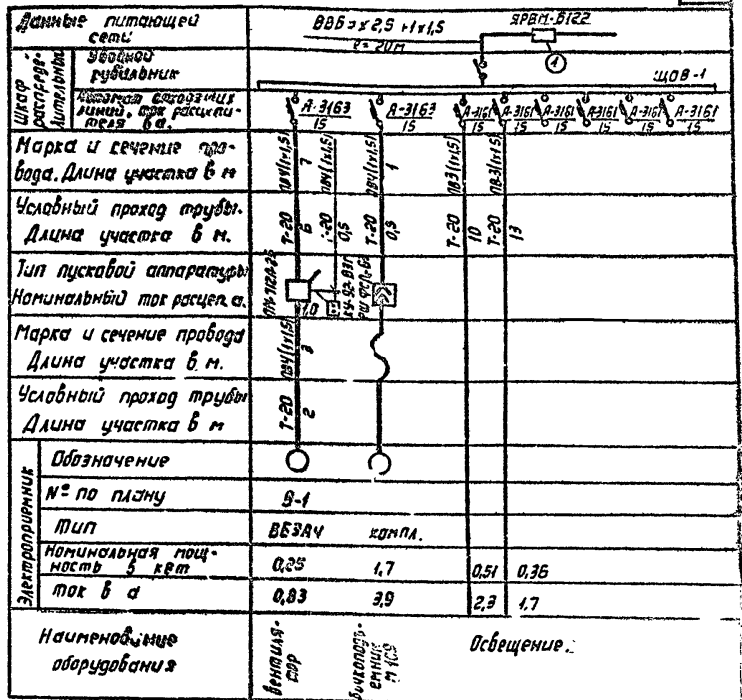 Данные питающей
сети
ВВБ 3х2,5 +1х1,5
ℓ = 20м
ЯРВМ-6122
1
Шкаф
распреде-
лительный
Вводной
рубильник
ЩОВ-1
Автомат отходящих
линий, ток расцепи-
теля в а.
А-3163
15
А-3163
15
А-3161
15
А-3161
15
А-3161
15
А-3161
15
А-3161
15
А-3161
15
Марка и сечение про-
вода. Длина участка в м
ПВ4(1х1,5)
7
ПВ4(1х1,5)
ПВ4(1х1,5)
1
ПВ3(1х1,5)
ПВ3(1х1,5)
Условный проход трубы.
Длина участка в м.
Т-20
6
Т-20
0,5
Т-20
0,9
Т-20
10
Т-20
13
Тип пусковой аппаратуры
Номинальный ток расцеп. а.
1,0
КУ-92-ВЗГ
Марка и сечение провода
Длина участка в м.
ПВ4(1х1,5)
3
Условный проход трубы
Длина участка в м
Т-20
2
Электроприемник
Обозначение
№ по плану
В-1
Тип
компл.
Номинальная мощ-
ность в квт
0,25
1,7
0,51
0,36
Ток в а
0,83
3,9
2,3
1,7
Наименование
оборудования
вентиля-
тор
Освещение.